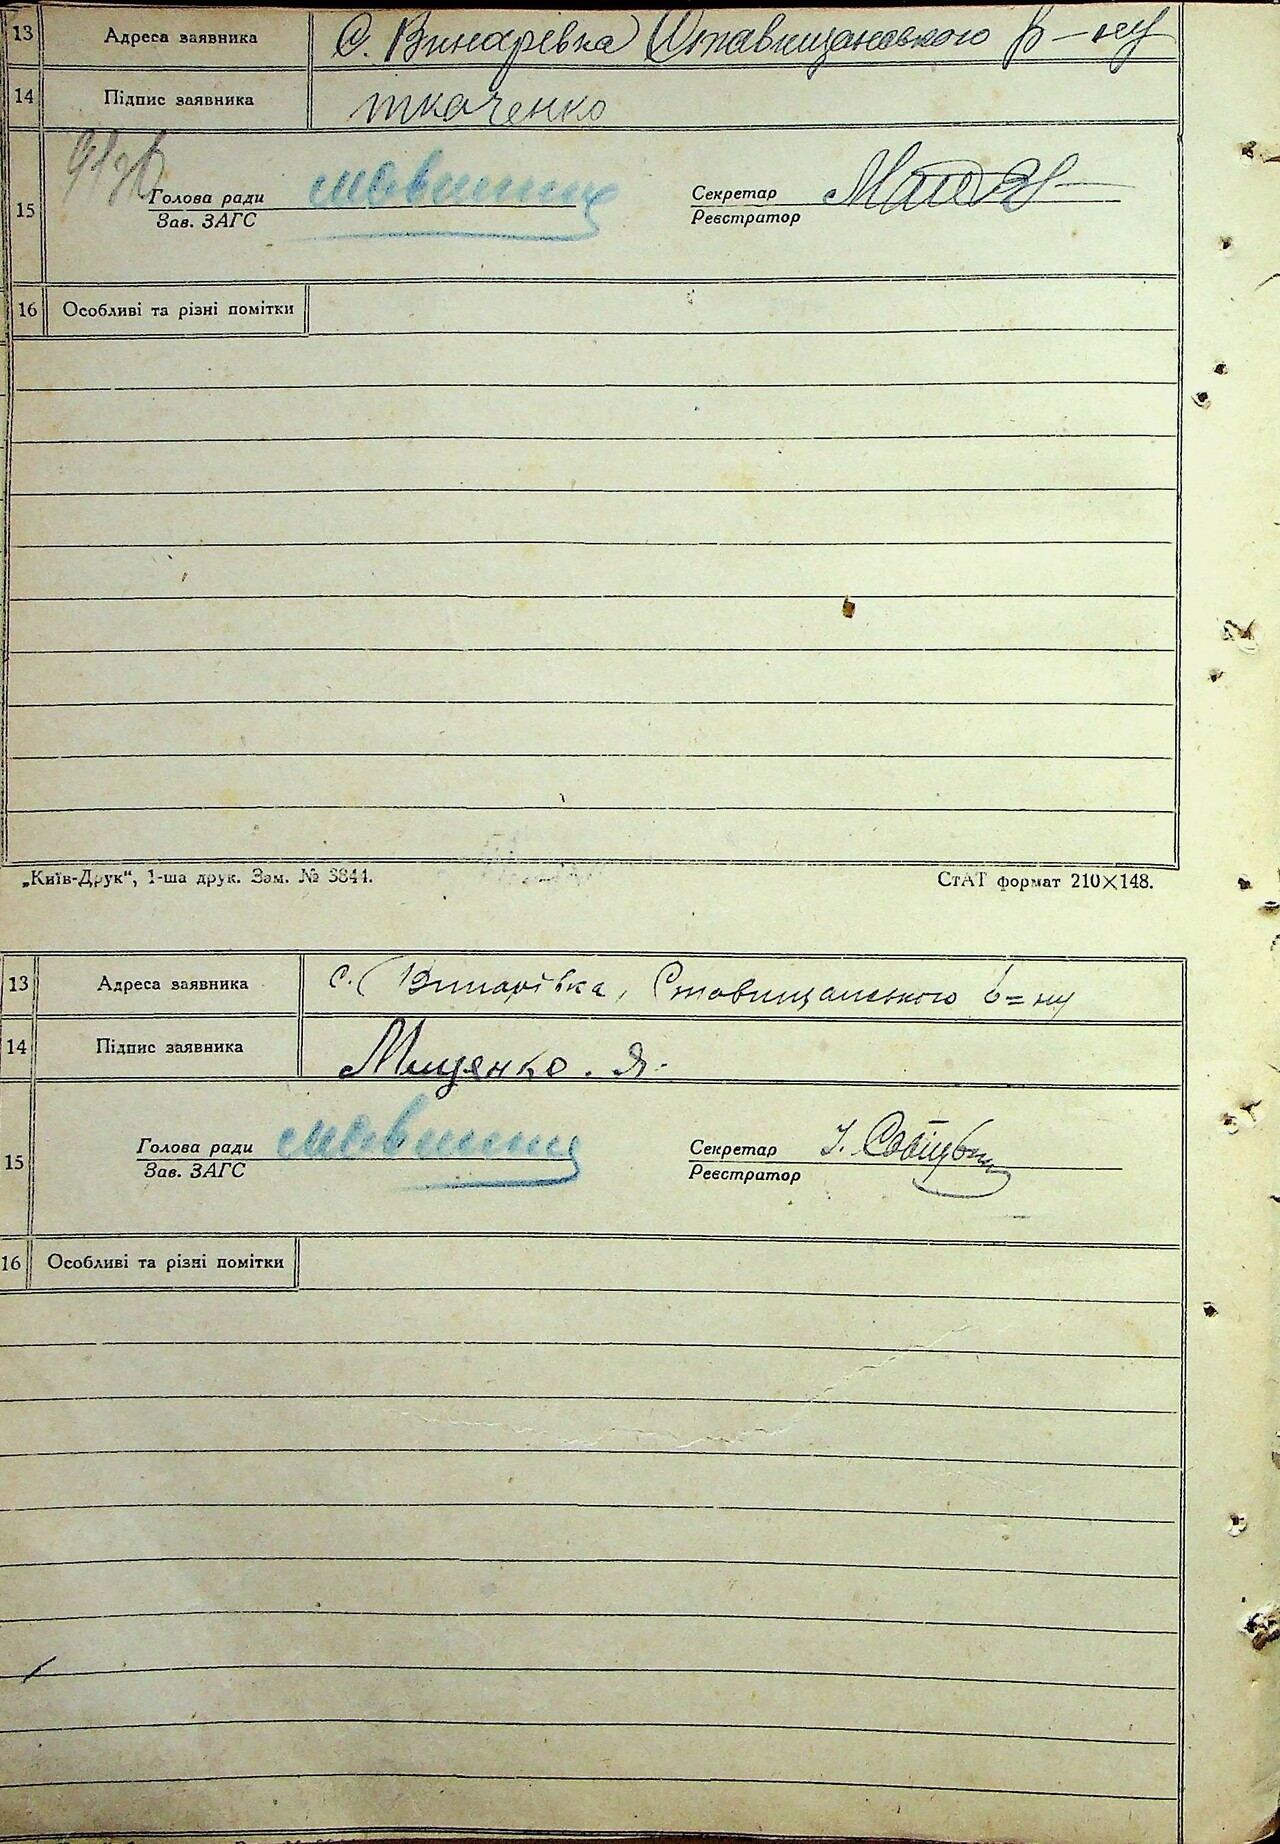 13 Адреса заявника С. Винарівка Ставищанського р-ну
14 Підпис заявника Ткаченко
15 Голова ради Секретар
Зав. ЗАГС Реєстратор
16 Особливі та різні помітки
„Київ-Друк“, 1-ша друк. Зам. № 3844. СтАТ формат 210×148.
13 Адреса заявника с. Винарівка, Ставищанського р=ну
14 Підпис заявника Мищенко. Я.
15 Голова ради Секретар
Зав. ЗАГС Реєстратор
16 Особливі та різні помітки